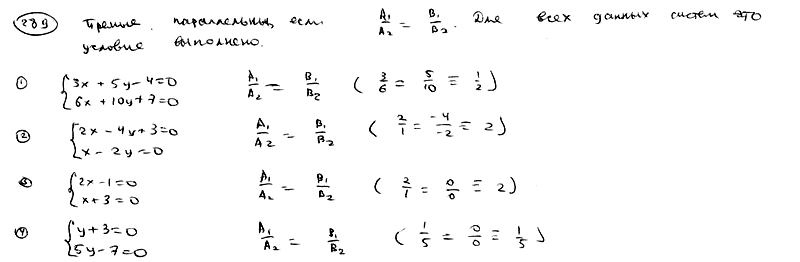 289 Прямые параллельны, если A₁/A₂ = B₁/B₂. Для всех данных систем это
условие выполнено.
① {3x + 5y - 4 = 0 A₁/A₂ = B₁/B₂ (3/6 = 5/10 = 1/2)
{6x + 10y + 7 = 0
② {2x - 4y + 3 = 0 A₁/A₂ = B₁/B₂ (2/1 = -4/-2 = 2)
{x - 2y = 0
③ {2x - 1 = 0 A₁/A₂ = B₁/B₂ (2/1 = 0/0 = 2)
{x + 3 = 0
④ {y + 3 = 0 A₁/A₂ = B₁/B₂ (1/5 = 0/0 = 1/5)
{5y - 7 = 0